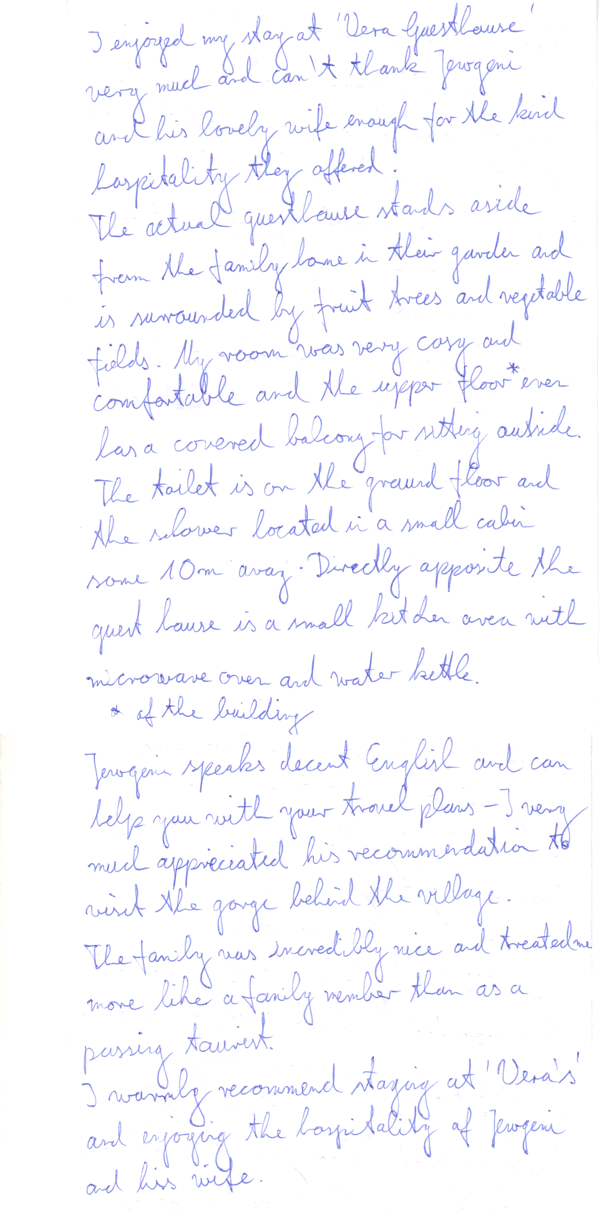 I enjoyed my stay at 'Vera Guesthouse'
very much and can't thank Jewgeni
and his lovely wife enough for the kind
hospitality they offered.
The actual guesthouse stands aside
from the family home in their garden and
is surrounded by fruit trees and vegetable
fields. My room was very cosy and
comfortable and the upper floor* even
has a covered balcony for sitting outside.
The toilet is on the ground floor and
the shower located in a small cabin
some 10m away. Directly opposite the
guest house is a small kitchen area with
microwave oven and water kettle.
* of the building
Jewgeni speaks decent English and can
help you with your travel plans – I very
much appreciated his recommendation to
visit the gorge behind the village.
The family was incredibly nice and treated me
more like a family member than as a
passing tourist.
I warmly recommend staying at 'Vera's'
and enjoying the hospitality of Jewgeni
and his wife.